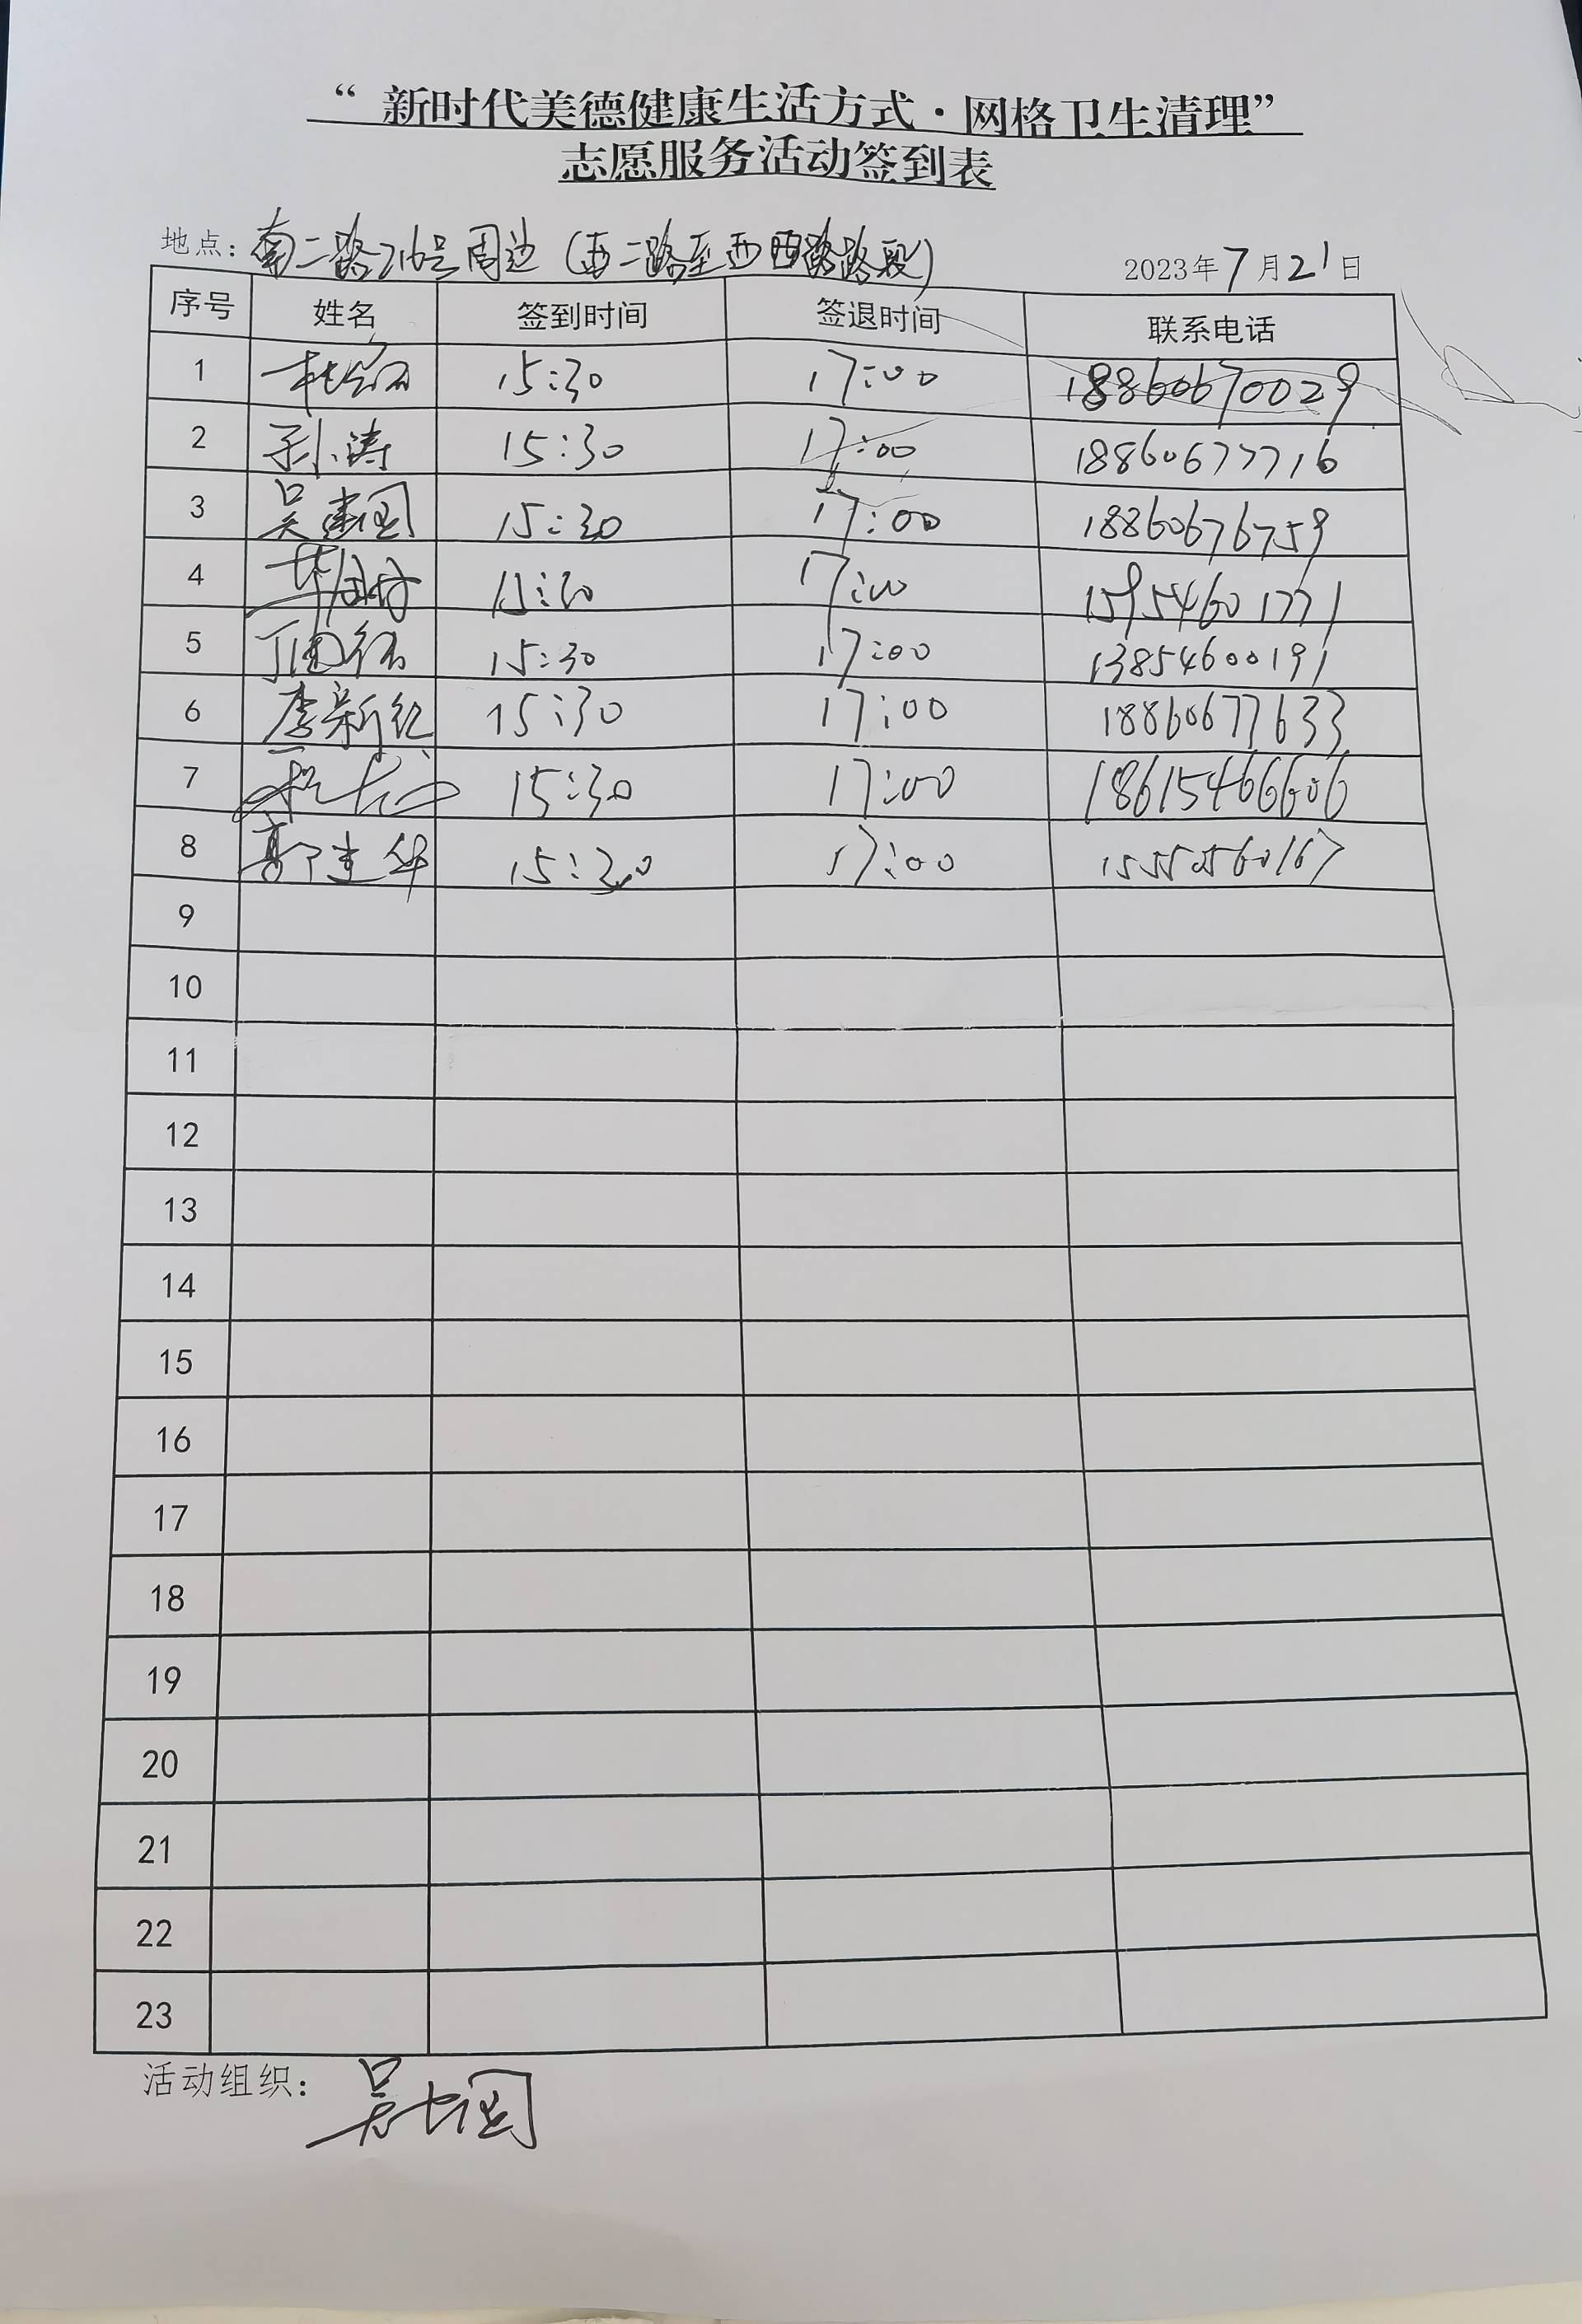 “新时代美德健康生活方式·网格卫生清理”
志愿服务活动签到表
地点：南二路216号周边（西二路至西四路路段）
2023年7月21日
序号 姓名 签到时间 签退时间 联系电话
1 15:30 17:00 18860670029
2 孙涛 15:30 17:00 18860677716
3 吴建国 15:30 17:00 18860676759
4 15:30 17:00 15954601771
5 15:30 17:00 13854600191
6 李新红 15:30 17:00 18860677633
7 15:30 17:00 18615466606
8 郭建华 15:30 17:00 15550560167
9
10
11
12
13
14
15
16
17
18
19
20
21
22
23
活动组织：吴建国